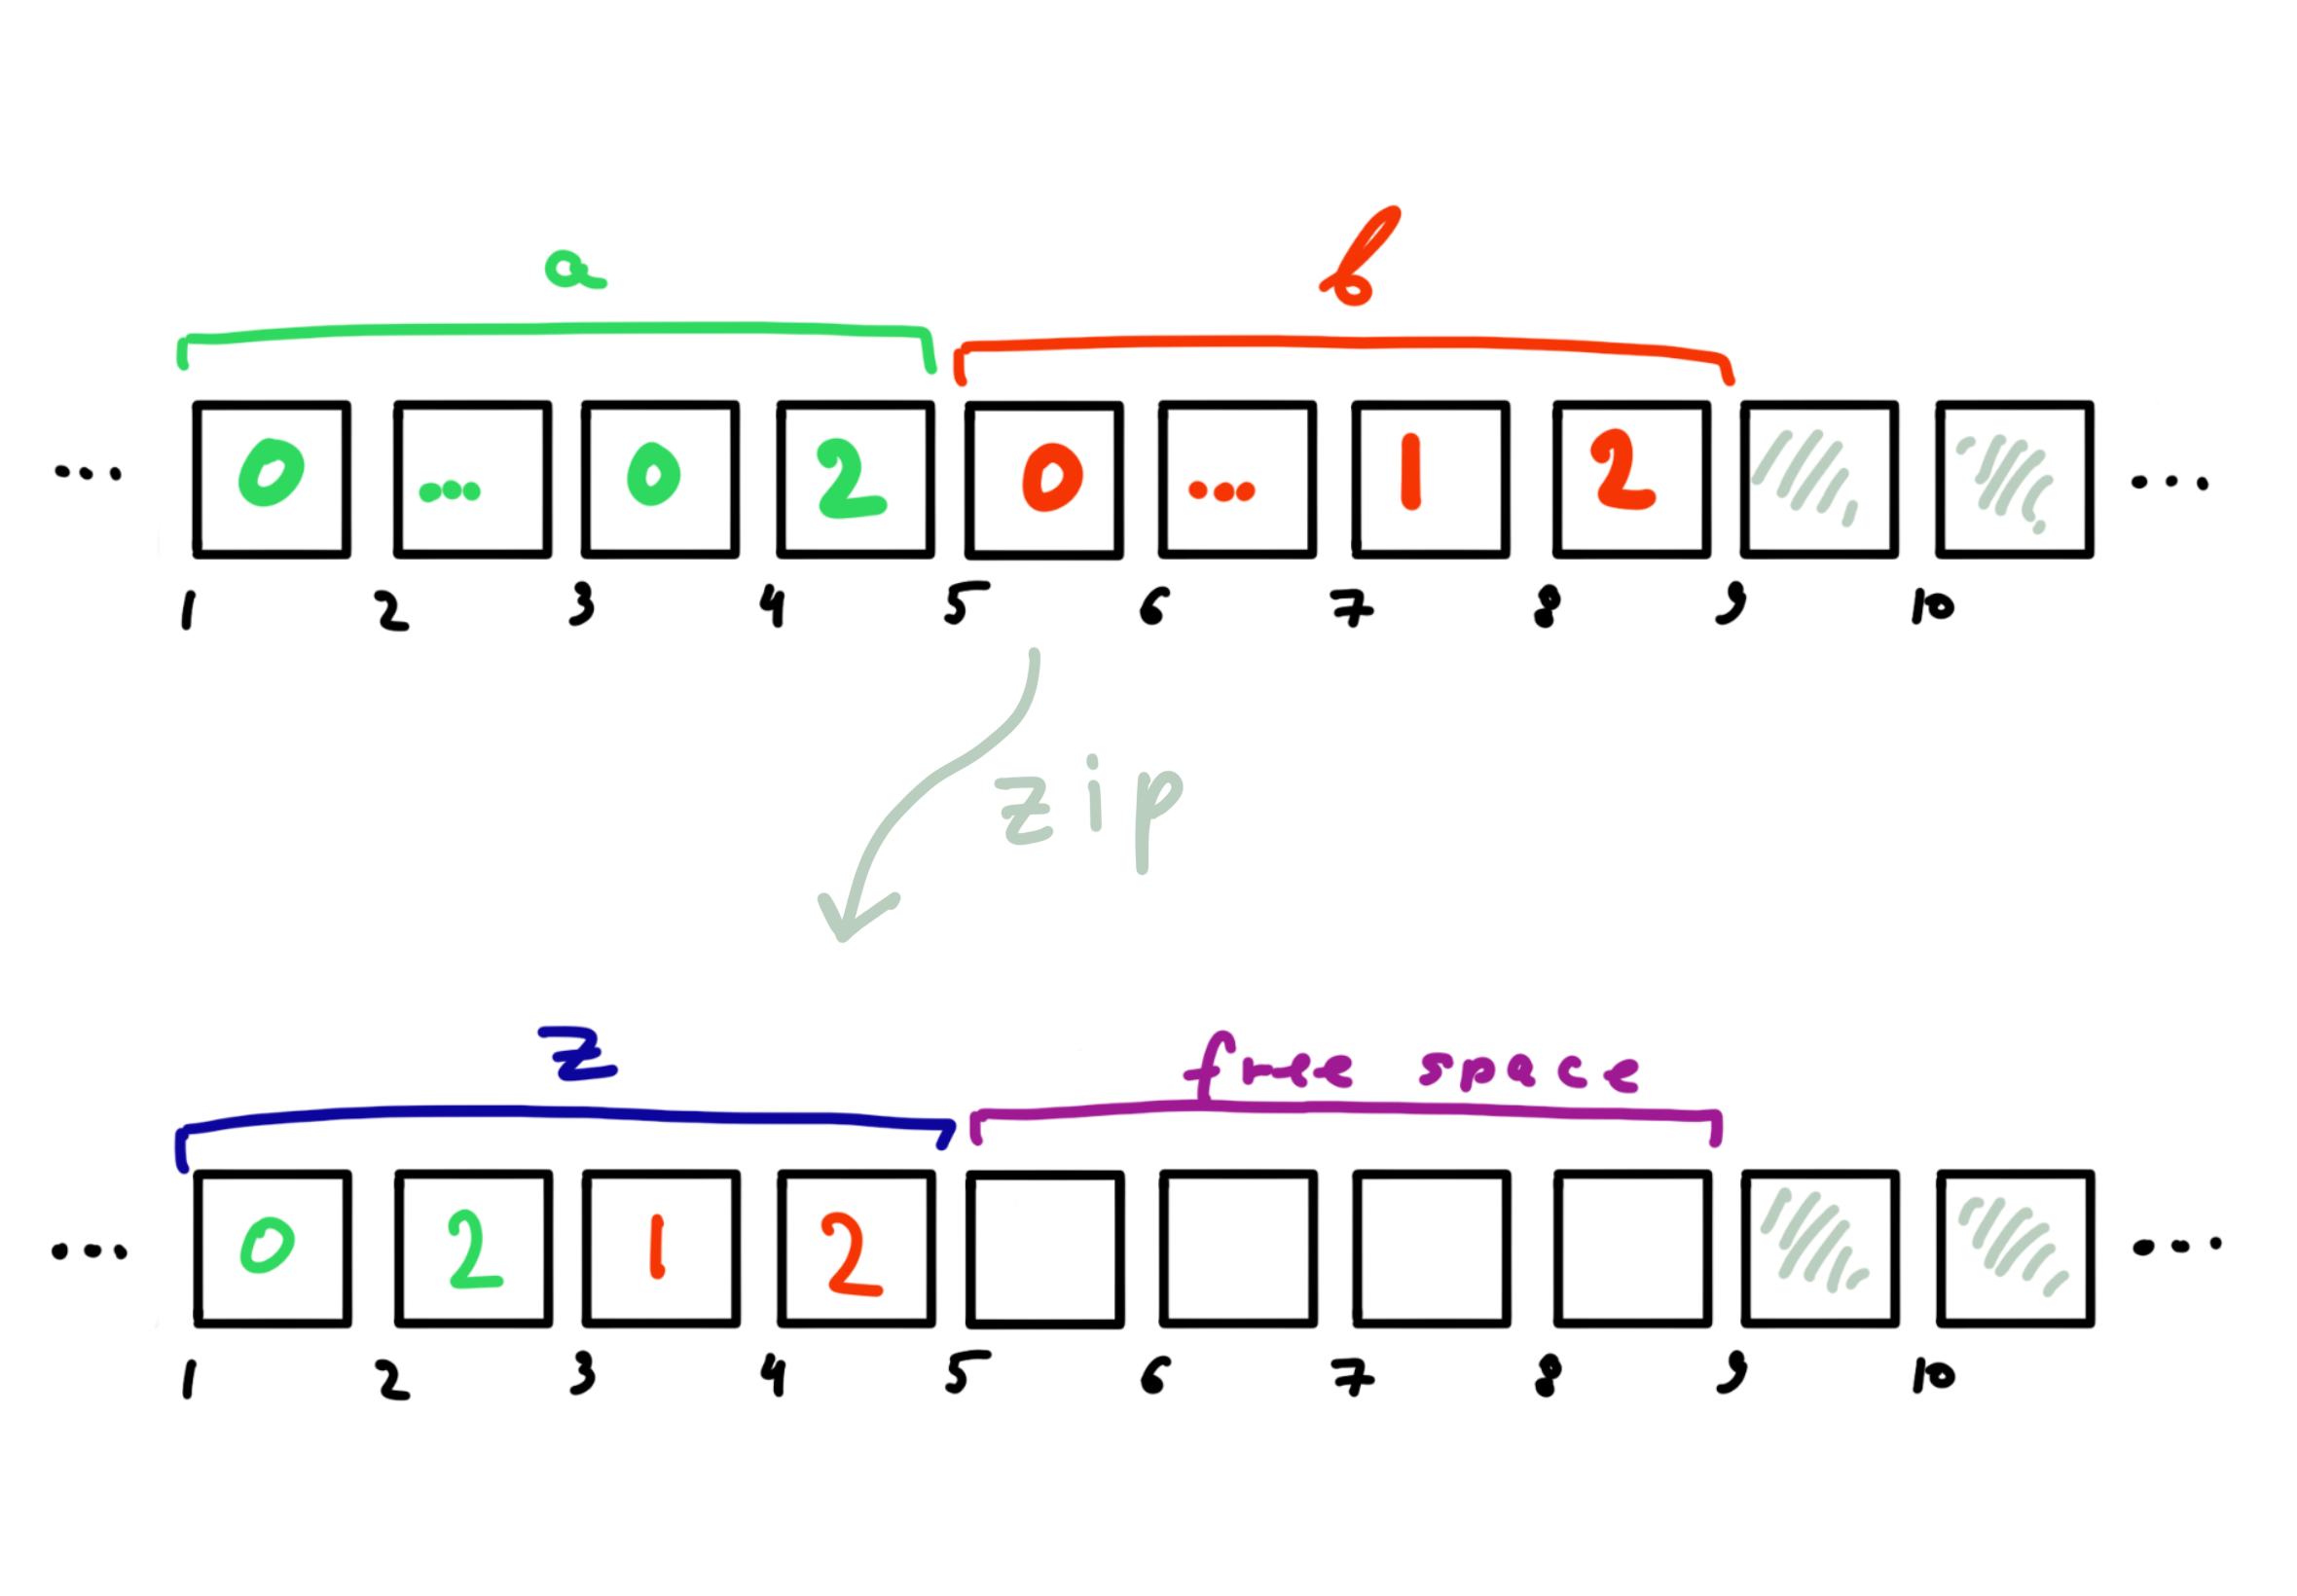 a b
... 0 ... 0 2 0 ... 1 2 ...
1 2 3 4 5 6 7 8 9 10
zip
z free space
... 0 2 1 2 ...
1 2 3 4 5 6 7 8 9 10